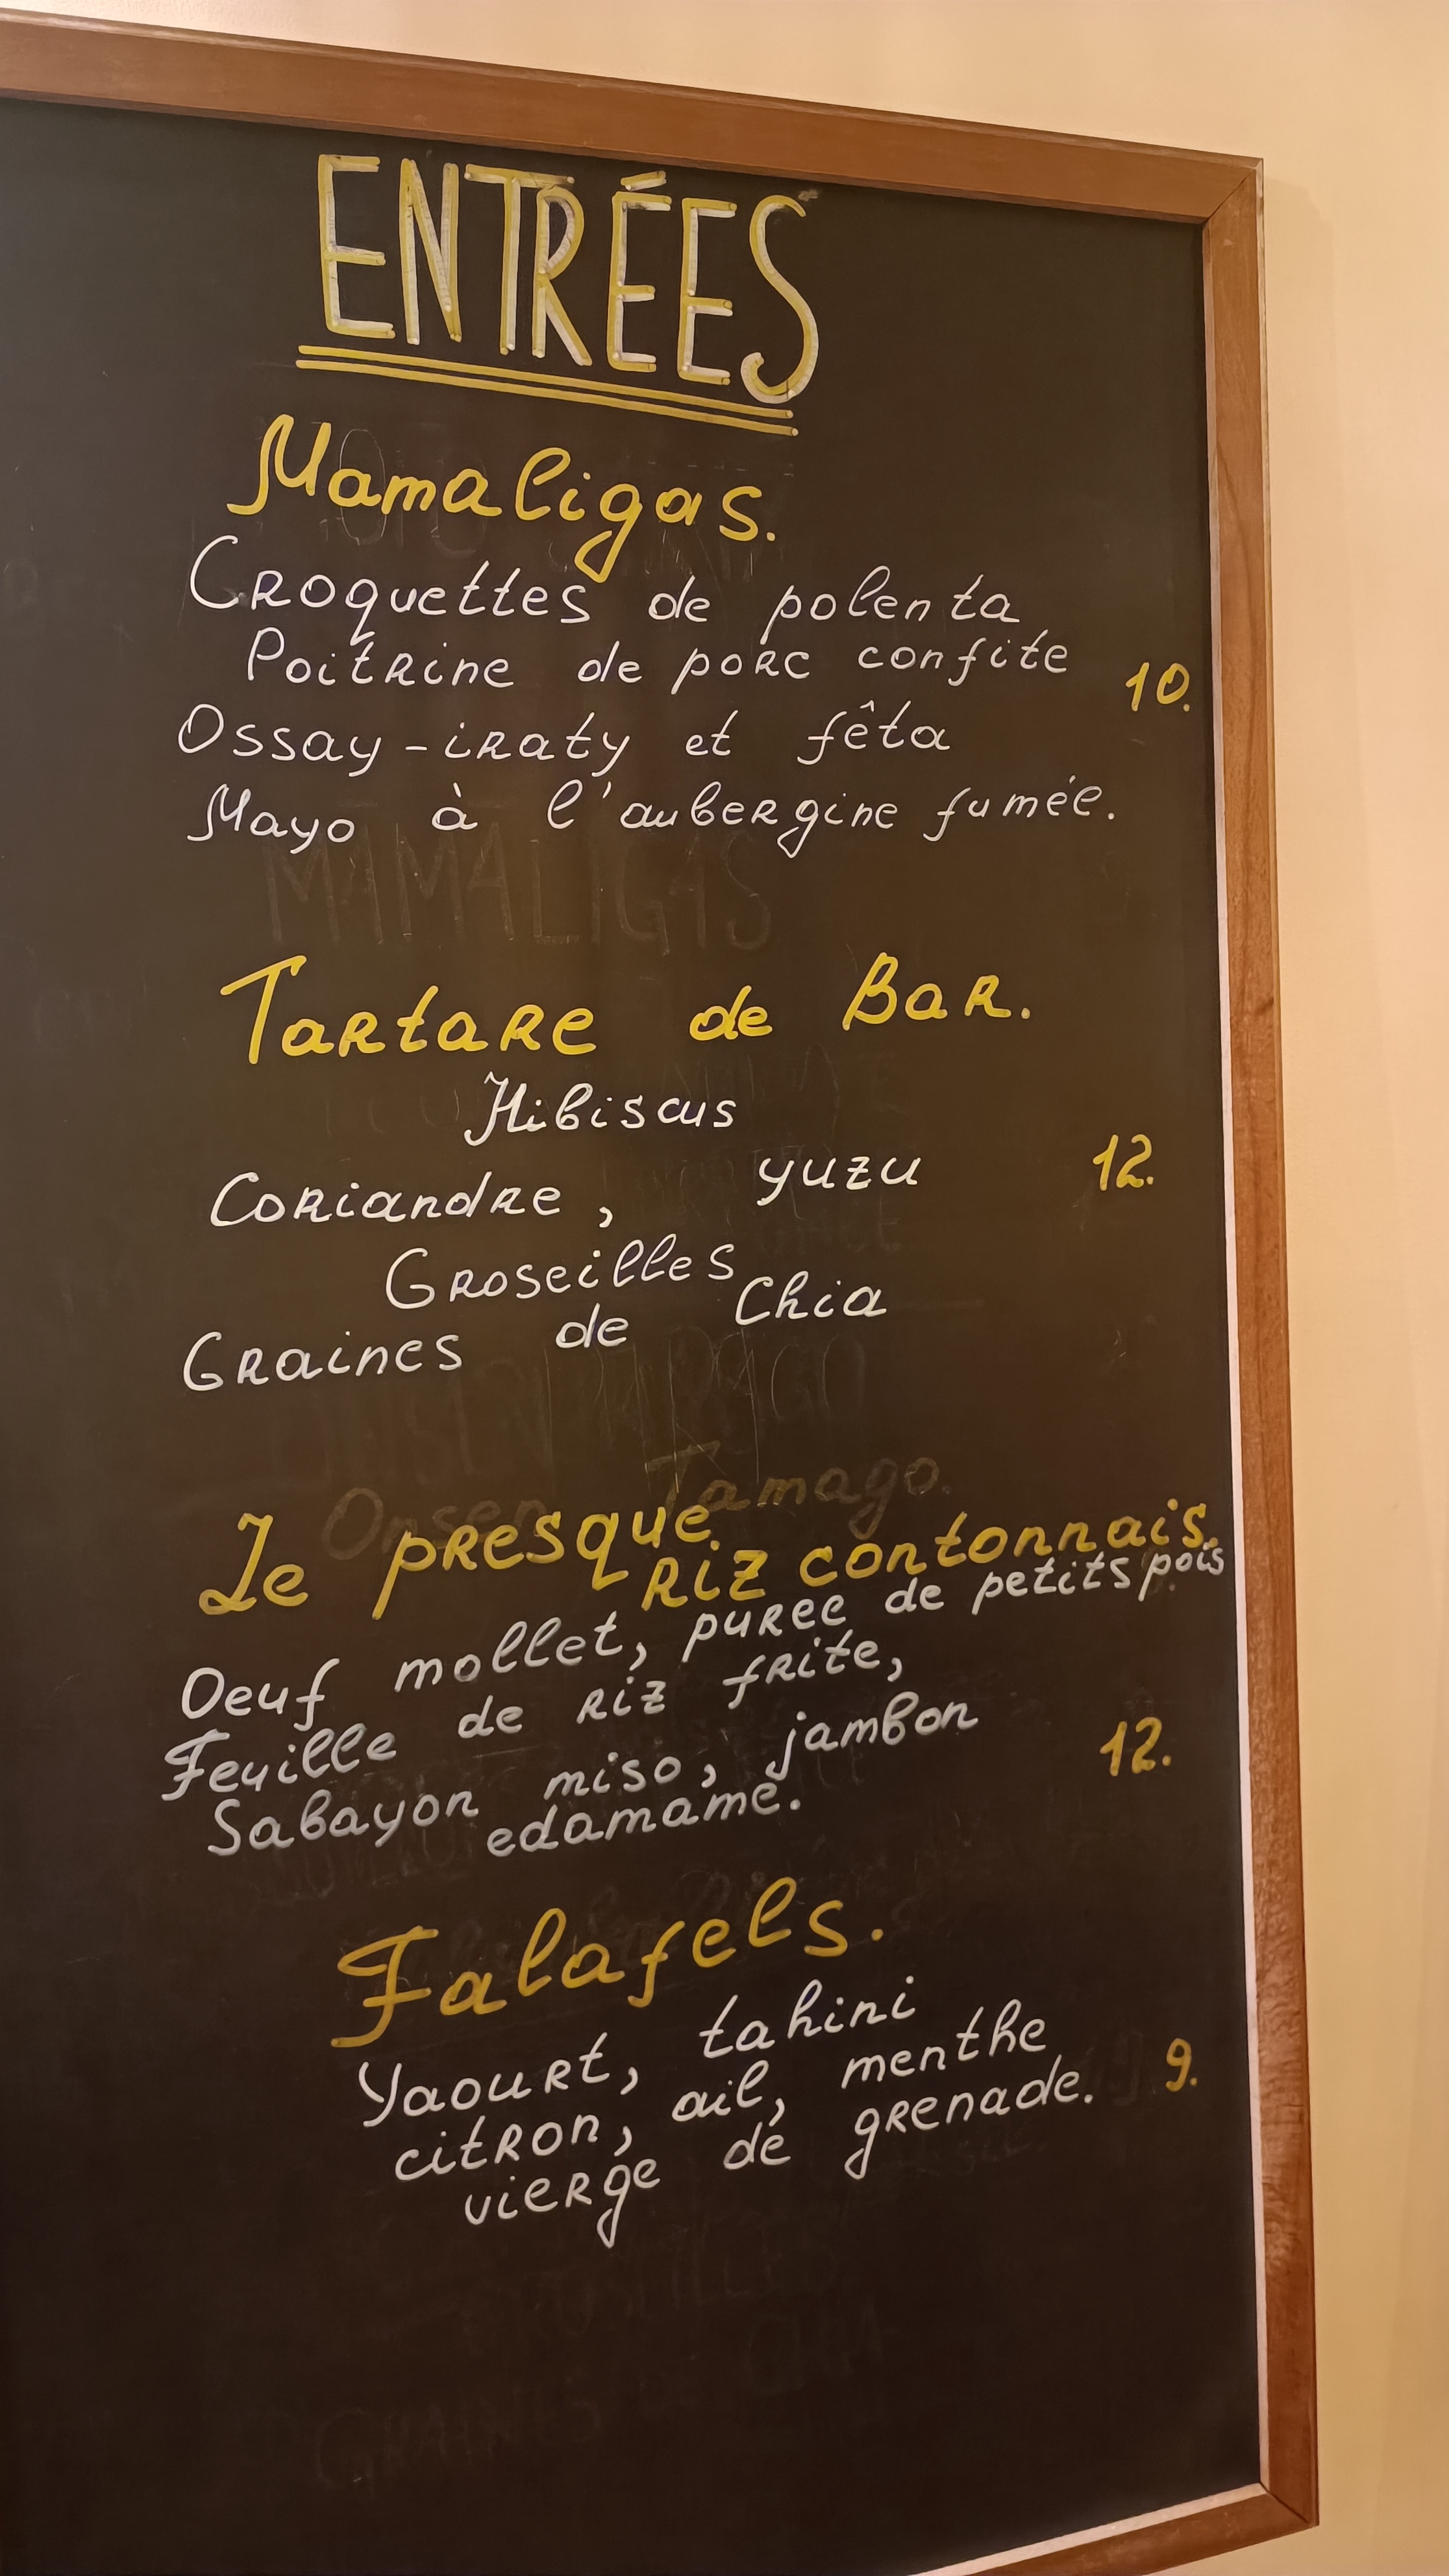 ENTRÉES
Mamaligas.
Croquettes de polenta
Poitrine de porc confite
10.
Ossay-iraty et fêta
Mayo à l'aubergine fumée.
MAMALIGAS
Tartare de Bar.
Hibiscus
Coriandre, yuzu
12.
Groseilles
Graines de Chia
Onsen Tamago.
Le presque
riz contonnais.
Oeuf mollet, puree de petits pois
Feuille de riz frite,
Sabayon miso, jambon
12.
edamame.
Falafels.
Yaourt, tahini
citron, ail, menthe
9.
vierge de grenade.